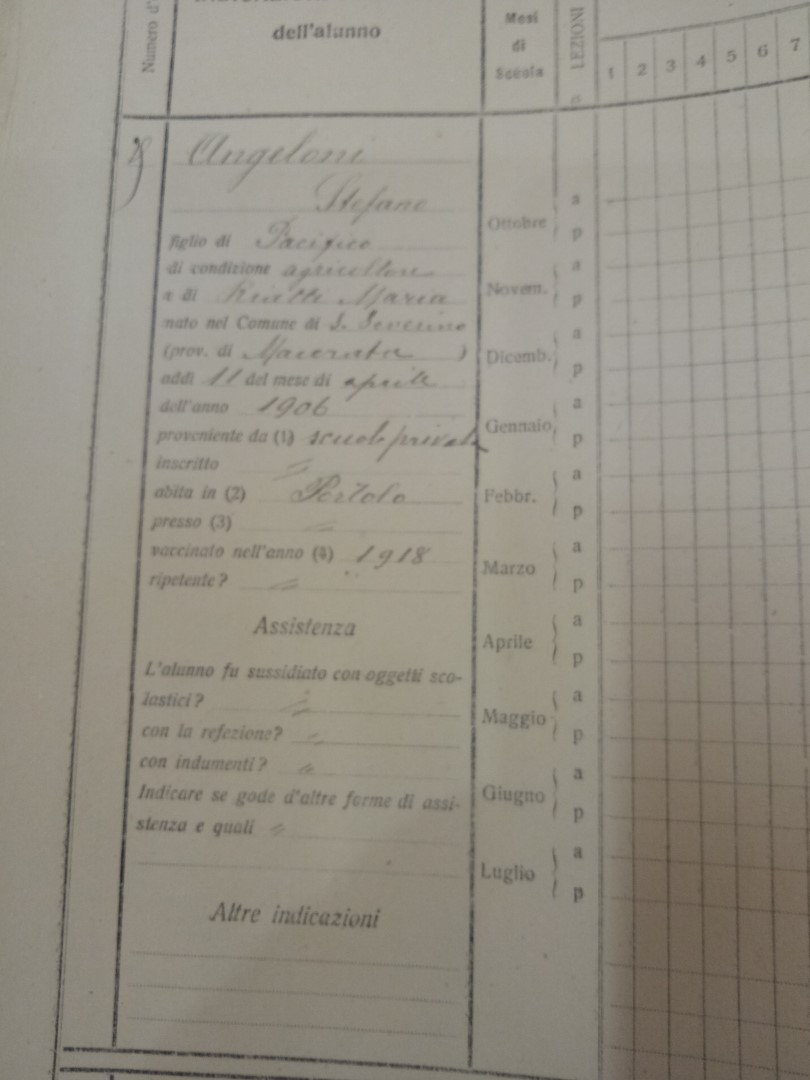 Numero d'
dell'alunno
Mesi
di
Scuola
LEZIONI
1 2 3 4 5 6 7
Angeloni
Stefano
figlio di Pacifico
di condizione agricoltore
e di Maria
nato nel Comune di S. Severino
(prov. di Macerata )
addì 11 del mese di aprile
dell'anno 1906
proveniente da (1) scuola privata
inscritto "
abita in (2)
presso (3) "
vaccinato nell'anno (4) 1918
ripetente? "
Assistenza
L'alunno fu sussidiato con oggetti sco-
lastici? "
con la refezione? "
con indumenti? "
Indicare se gode d'altre forme di assi-
stenza e quali "
Altre indicazioni
Ottobre a
p
Novem. a
p
Dicemb. a
p
Gennaio a
p
Febbr. a
p
Marzo a
p
Aprile a
p
Maggio a
p
Giugno a
p
Luglio a
p